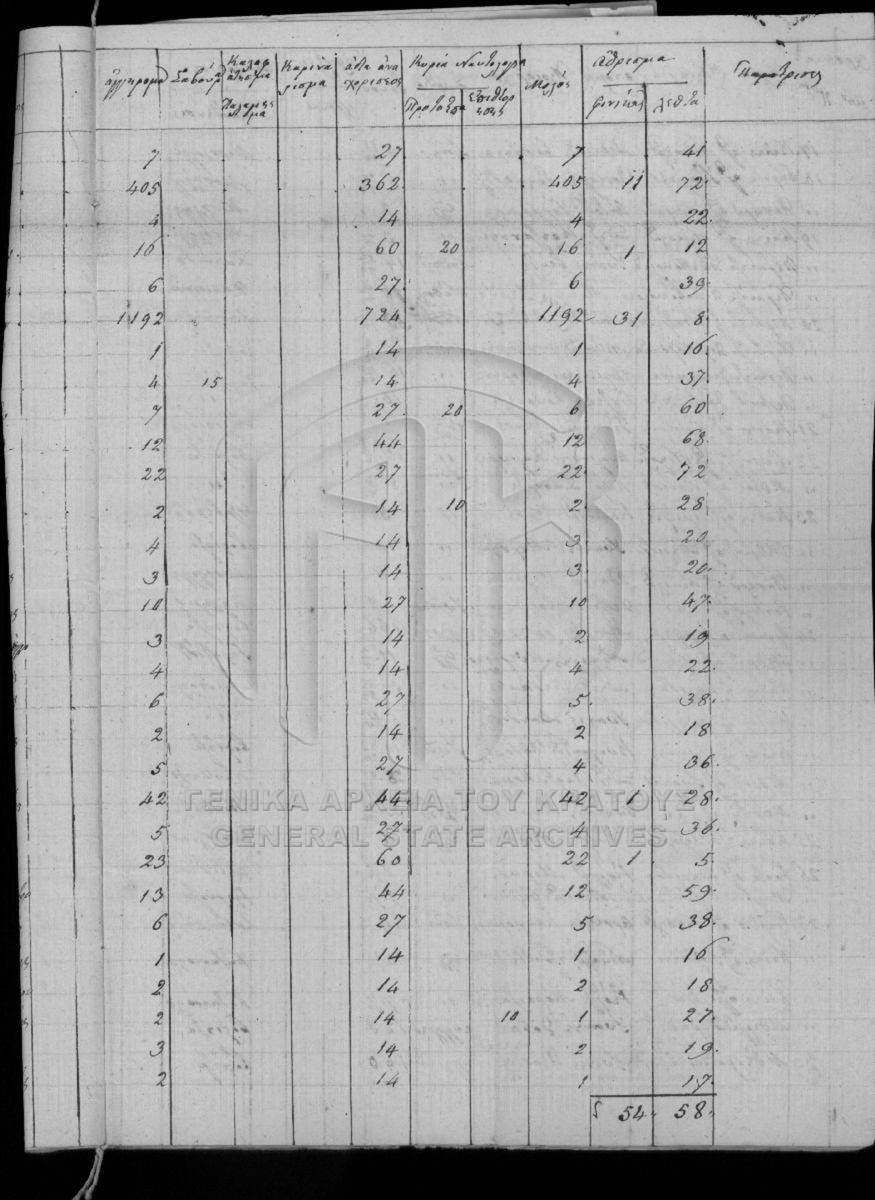 ἀγγυροβολ Σαβούρ Καλαφάτισμα Καρινάγισμα ἄδια ἀναχορίσεος Κυρία Ναυτολογία Μολός ἄθρισμα Παρατήρισες
Παλαμησμα Προτάξια Ἐπιθεόρησης φοινίκες λεπτά
7 27 7 41
405 362 405 11 72
4 14 4 22
16 60 20 16 1 12
6 27 6 39
1192 724 1192 31 8
1 14 1 16
4 15 14 4 37
7 27 20 6 60
12 44 12 68
22 27 22 72
2 14 10 2 28
4 14 3 20
3 14 3 20
10 27 10 47
3 14 2 19
4 14 4 22
6 27 5 38
2 14 2 18
5 27 4 36
42 44 42 1 28
ΓΕΝΙΚΑ ΑΡΧΕΙΑ ΤΟΥ ΚΡΑΤΟΥΣ
5 27 4 36
GENERAL STATE ARCHIVES
23 60 22 1 5
13 44 12 59
6 27 5 38
1 14 1 16
2 14 2 18
2 14 10 1 27
3 14 2 19
2 14 1 17
54 58